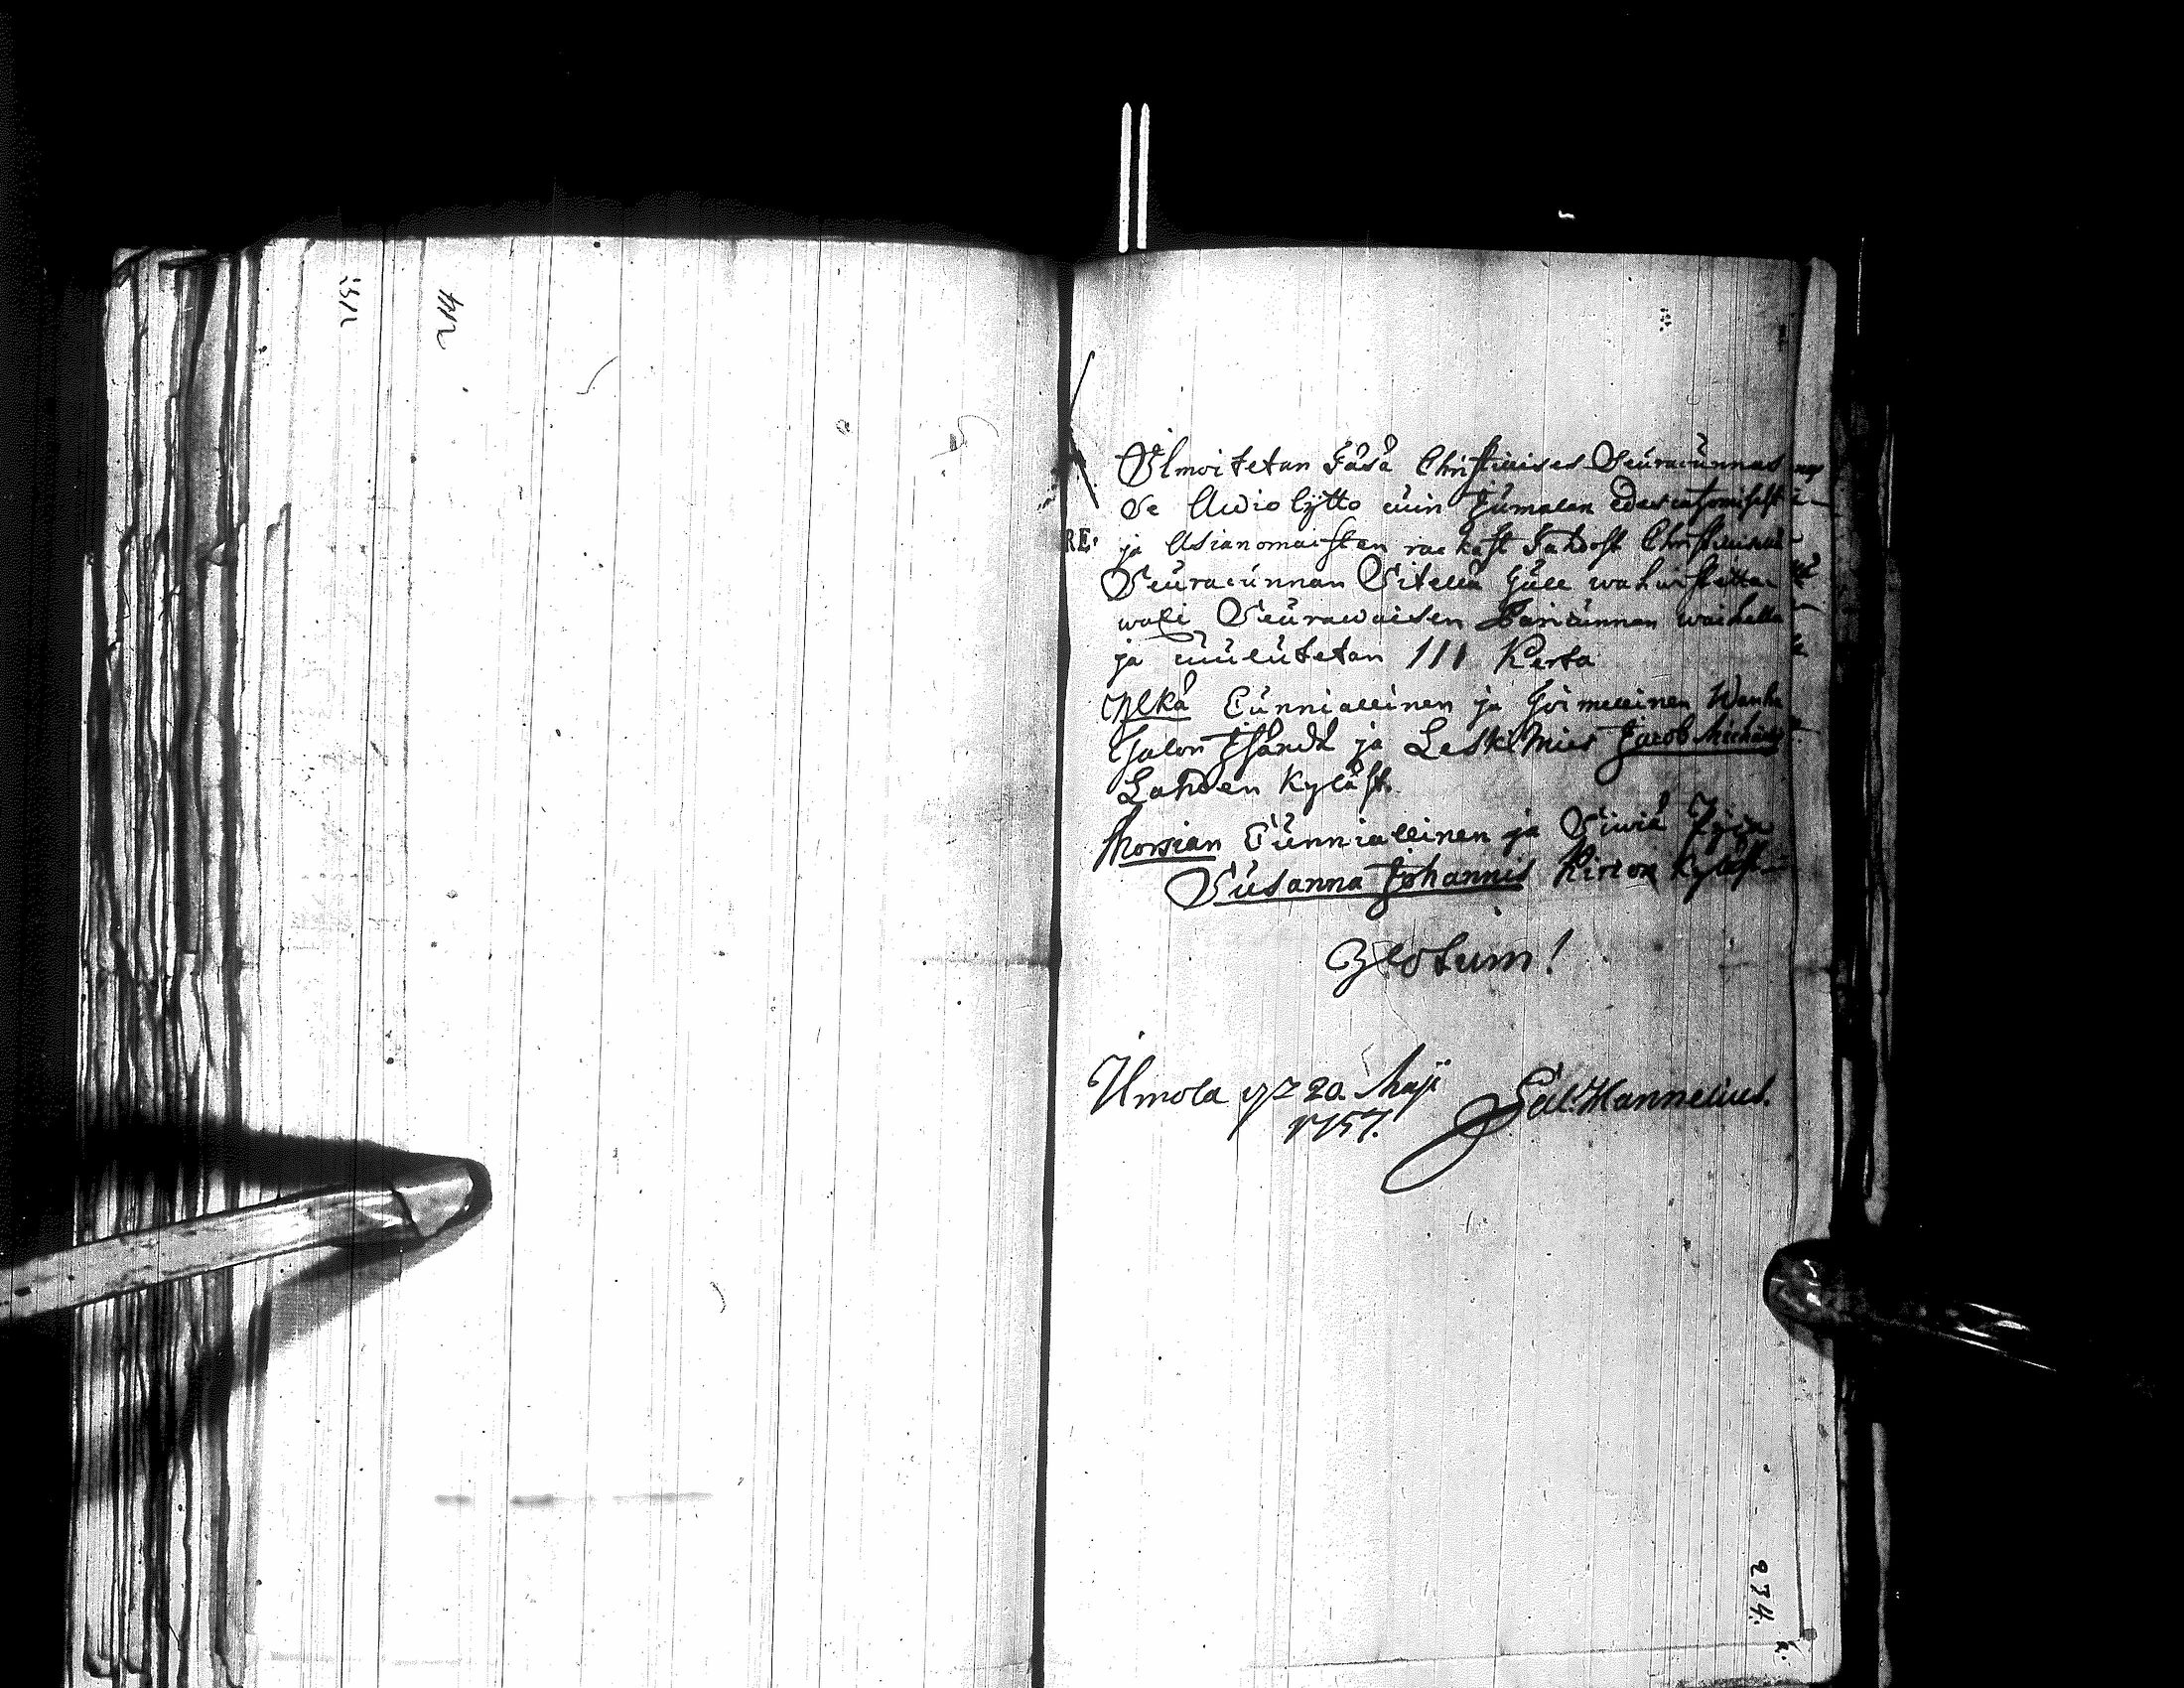 Ilmoitetan Täsä Christilises Seuracunnas
Se Awio lijtto cuin Jumalan edescatzomisest
ja Asianomaisten rackast Tahdost Christilisen
Seuracunnan Sitellä Jälle wahwistettan
wasi Seurawaisen Pariacunnan waihella
ja cuulutetan III Kerta
Ylkä Cunniallinen ja Toimellinen Wanha
Talon Isändä ja Leski Mies Jacob Michels
Lahden Kyläst.
Morsian Cunniallinen ja Siwiä Pijca
Susanna Johannis Kircon Kyläst
Z Votum!
Ilmola 20. Maji
1757.
Sal. Hannelius.
234.